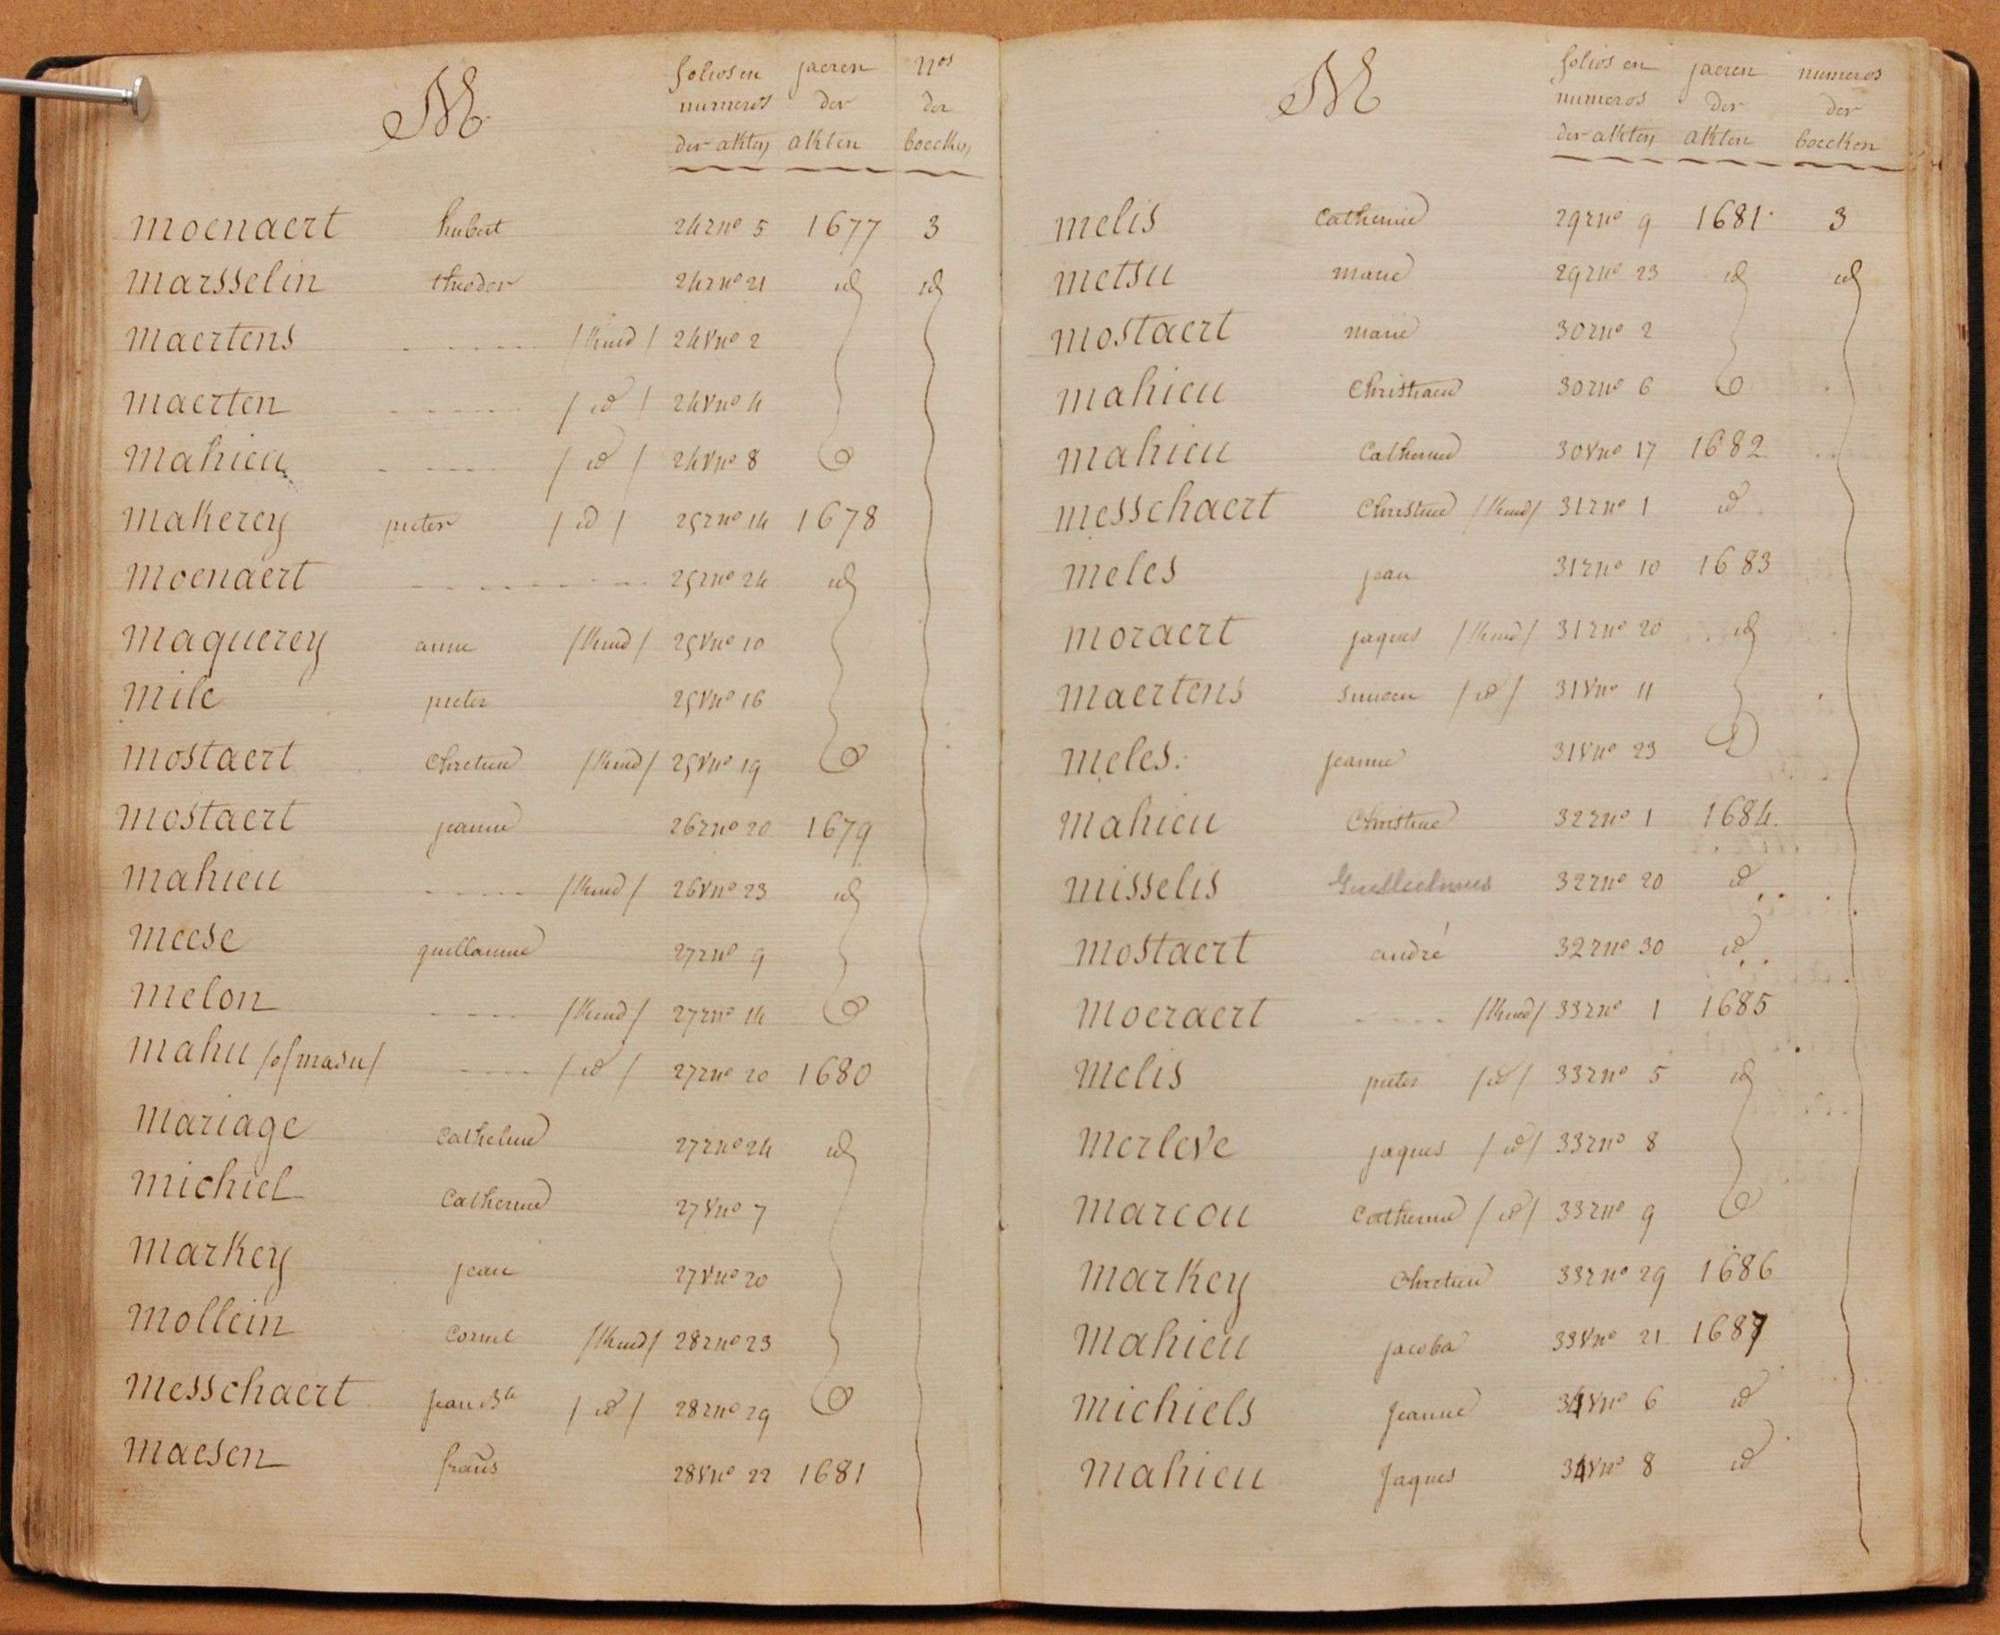 M
folios en jaeren nos
numeros der der
der akten akten boecken
moenaert hubert 24 r no 5 1677 3
marsselin theodor 24 r no 21 id id
maertens - - - - - /kind/ 24 v no 2
maerten - - - - - /id/ 24 v no 4
mahieu - - - - - /id/ 24 v no 8
makerey pieter /id/ 25 r no 14 1678
moenaert - - - - - - - - 25 r no 24 id
maquerey anne /kind/ 25 v no 10
mile pieter 25 v no 16
mostaert chretien /kind/ 25 v no 19
mostaert jeanne 26 r no 20 1679
mahieu - - - - /kind/ 26 v no 23 id
meese guillaume 27 r no 9
melon - - - - /kind/ 27 r no 14
mahu /of masu/ - - - - /id/ 27 r no 20 1680
mariage catheline 27 r no 24 id
michiel catherine 27 v no 7
markey jean 27 v no 20
mollein cornil /kind/ 28 r no 23
messchaert jean bte /id/ 28 r no 29
maesen frans 28 v no 22 1681
M
folios en jaeren numeros
numeros der der
der akten akten boecken
melis catherine 29 r no 9 1681 3
metsu marie 29 r no 23 id id
mostaert marie 30 r no 2
mahieu christiaen 30 r no 6
mahieu catherine 30 v no 17 1682
messchaert christine /kind/ 31 r no 1 id
meles jean 31 r no 10 1683
moraert jaques /kind/ 31 r no 20 id
maertens simoen /id/ 31 v no 11
meles. jeanne 31 v no 23
mahieu christine 32 r no 1 1684.
misselis Guillielmus 32 r no 20 id
mostaert andré 32 r no 30 id
moeraert - - - - /kind/ 33 r no 1 1685
melis pieter /id/ 33 r no 5 id
merleve jaques /id/ 33 r no 8
marcou catherine /id/ 33 r no 9
markey chretien 33 r no 29 1686
mahieu jacoba 33 v no 21 1687
michiels jeanne 34 v no 6 id
mahieu jaques 34 v no 8 id